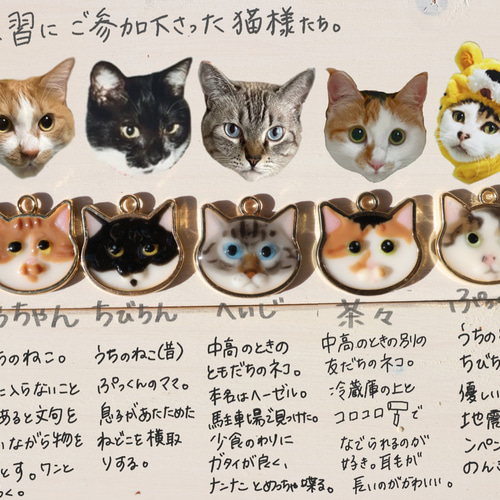 習にご参加下さった猫様たち。
ちゃん
ちびらん
へいじ
茶々
ちのねこ。
に入らないこと
あると文句を
いながら物を
とす。ワンと
く。
うちのねこ(昔)
ぷっくんのママ。
息子があたためた
ねどこを横取
りする。
中高のときの
ともだちのネコ。
本名はヘーゼル。
駐車場で見つけた。
少食のわりに
ガタイが良く、
ナーナーとめっちゃ喋る。
中高のときの別の
友だちのネコ。
冷蔵庫の上と
コロコロで
なでられるのが
好き。耳毛が
長いのがかわいい。
うちの
ちび
優しい
地震
ンペン
のん